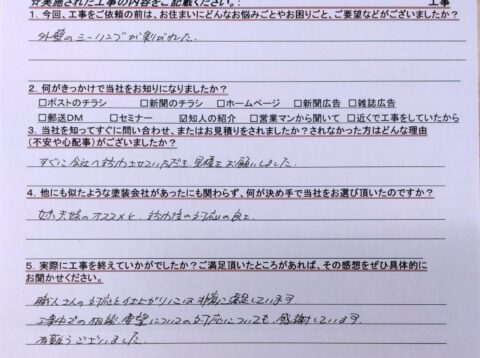 ☆実施された工事の内容をご記載ください。: 工事
1. 今回、工事をご依頼の前は、お住まいにどんなお悩みごとやお困りごと、ご要望などがございましたか？
外壁のシーリングが割れた.
2. 何がきっかけで当社をお知りになりましたか？
□ポストのチラシ □新聞のチラシ □ホームページ □新聞広告 □雑誌広告
□郵送DM □セミナー ☑知人の紹介 □営業マンから聞いて □近くで工事をしていたから
3. 当社を知ってすぐに問い合わせ、またはお見積りをされましたか？されなかった方はどんな理由
(不安や心配事)がございましたか？
すぐに会社へ いただき 見積をお願いしました.
4. 他にも似たような塗装会社があったにも関わらず、何が決め手で当社をお選び頂いたのですか？
夫婦のオススメと, の対応の良さ.
5. 実際に工事を終えていかがでしたか？ご満足頂いたところがあれば、その感想をぜひ具体的に
お聞かせください。
職人さんの対応と仕上がりには非常に満足しています.
工事中での相談、要望についての対応についても, 感謝しています.
有難うございました.